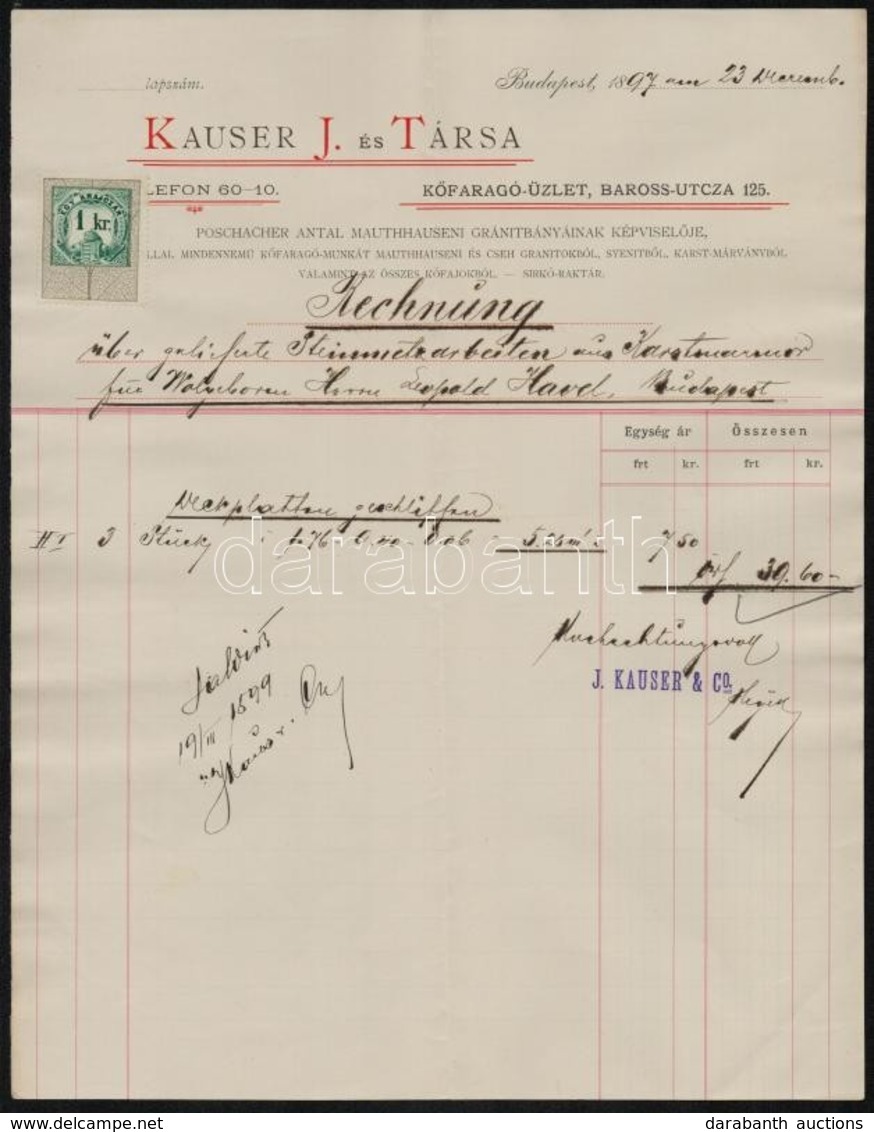 lapszám.
Budapest, 1897 am 23 Decemb.
KAUSER J. ÉS TÁRSA
LEFON 60-10.
KŐFARAGÓ-ÜZLET, BAROSS-UTCZA 125.
1 kr.
POSCHACHER ANTAL MAUTHHAUSENI GRÁNITBÁNYÁINAK KÉPVISELŐJE,
ÁLLAL MINDENNEMŰ KŐFARAGÓ-MUNKÁT MAUTHHAUSENI ÉS CSEH GRANITOKBÓL, SYENITBŐL, KARST-MÁRVÁNYBÓL
VALAMINT AZ ÖSSZES KŐFAJOKBÓL. — SIRKŐ-RAKTÁR.
Rechnung
über gelieferte Steinmetzarbeiten aus Karstmarmor
für Wolgeboren Herrn Leopold Havel, Budapest
Egység ár Összesen
frt kr. frt kr.
Deckplatten geschliffen
3 Stück 7 50
39.60
Hochachtungsvoll
J. KAUSER & Co.
19/III 1899
darabanth
darabanth auctions